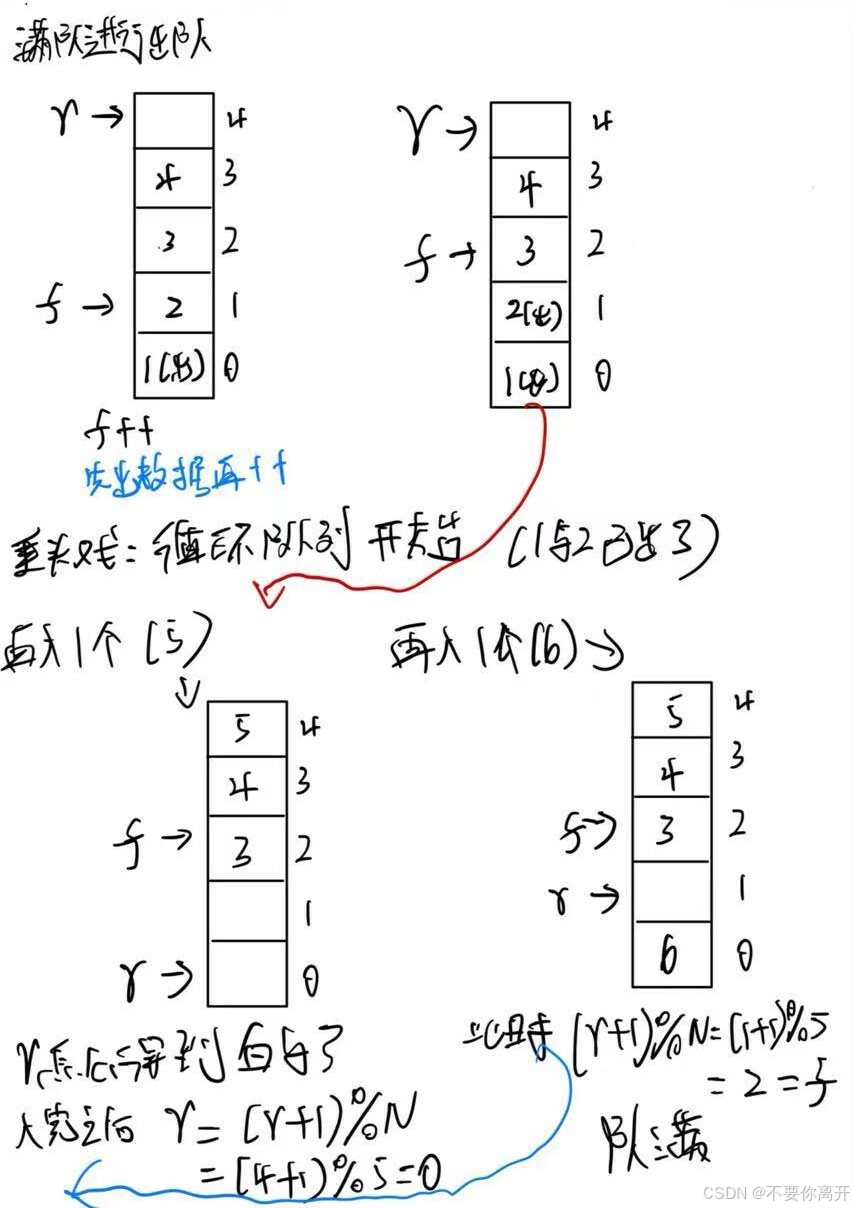 满队进行出队
r → 4
4 3
3 2
f → 2 1
1(出) 0
f++
先出数据再++
r → 4
4 3
f → 3 2
2(出) 1
1(出) 0
重头戏：循环队列开始 (1与2已出了)
再入1个(5)
5 4
4 3
f → 3 2
1
r → 0
入完之后 r = (r+1)%N
= (4+1)%5=0
再入1个(6) →
5 4
4 3
f → 3 2
r → 1
6 0
此时 (r+1)%N=(1+1)%5
= 2 = f
队满
CSDN @不要你离开